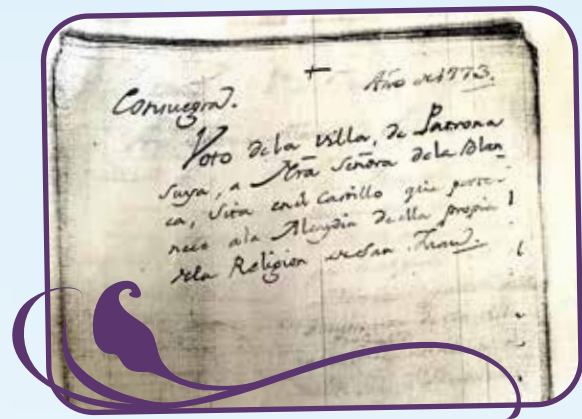 +
Año de 1773.
Consuegra.
Voto de la villa, de Patrona
suya, a Ntra Señora de la Blan
ca, Sita en el Castillo que perte-
nece a la Alcaydia de ella propia
de la Religion de San Juan.